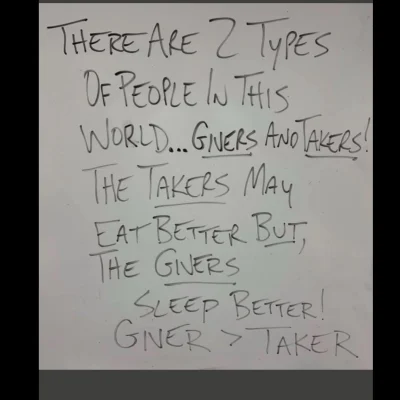 THERE ARE 2 TYPES
OF PEOPLE IN THIS
WORLD... GIVERS AND TAKERS!
THE TAKERS MAY
EAT BETTER BUT,
THE GIVERS
SLEEP BETTER!
GIVER > TAKER